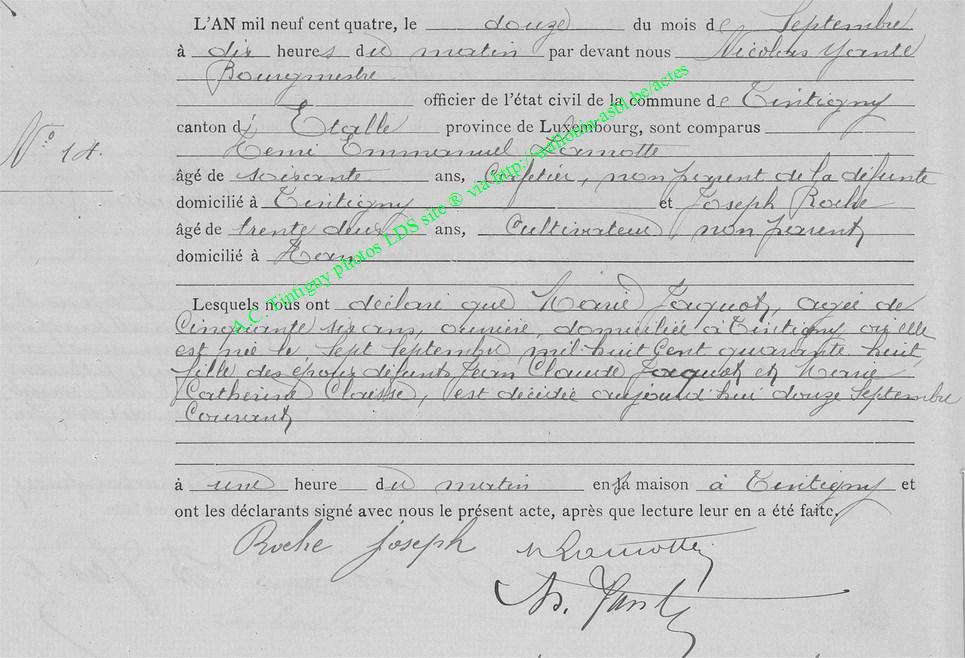 L'AN mil neuf cent quatre, le douze du mois de Septembre
à dix heures du matin par devant nous Nicolas Yante
Bourgmestre
officier de l'état civil de la commune de Tintigny
N° 14.
canton d' Etalle province de Luxembourg, sont comparus
Henri Emmanuel Lamotte
âgé de soixante ans, Cafetier, non parent de la défunte
domicilié à Tintigny et Joseph Roche
âgé de trente deux ans, Cultivateur, non parent,
domicilié à Han
Lesquels nous ont déclaré que Marie Jaquot, agée de
Cinquante six ans, domiciliée à Tintigny ou elle
est née le, sept septembre mil huit cent quarante huit,
fille des époux défunts Jean Claude Jaquot et Marie
Catherine Claisse, est décédée aujourd'hui douze Septembre
Courant,
à une heure du matin en sa maison à Tintigny et
ont les déclarants signé avec nous le présent acte, après que lecture leur en a été faite.
Roche joseph Lamotte
N. Yante
A.C. Tintigny photos LDS site ® via http://wallonia-asbl.be/actes